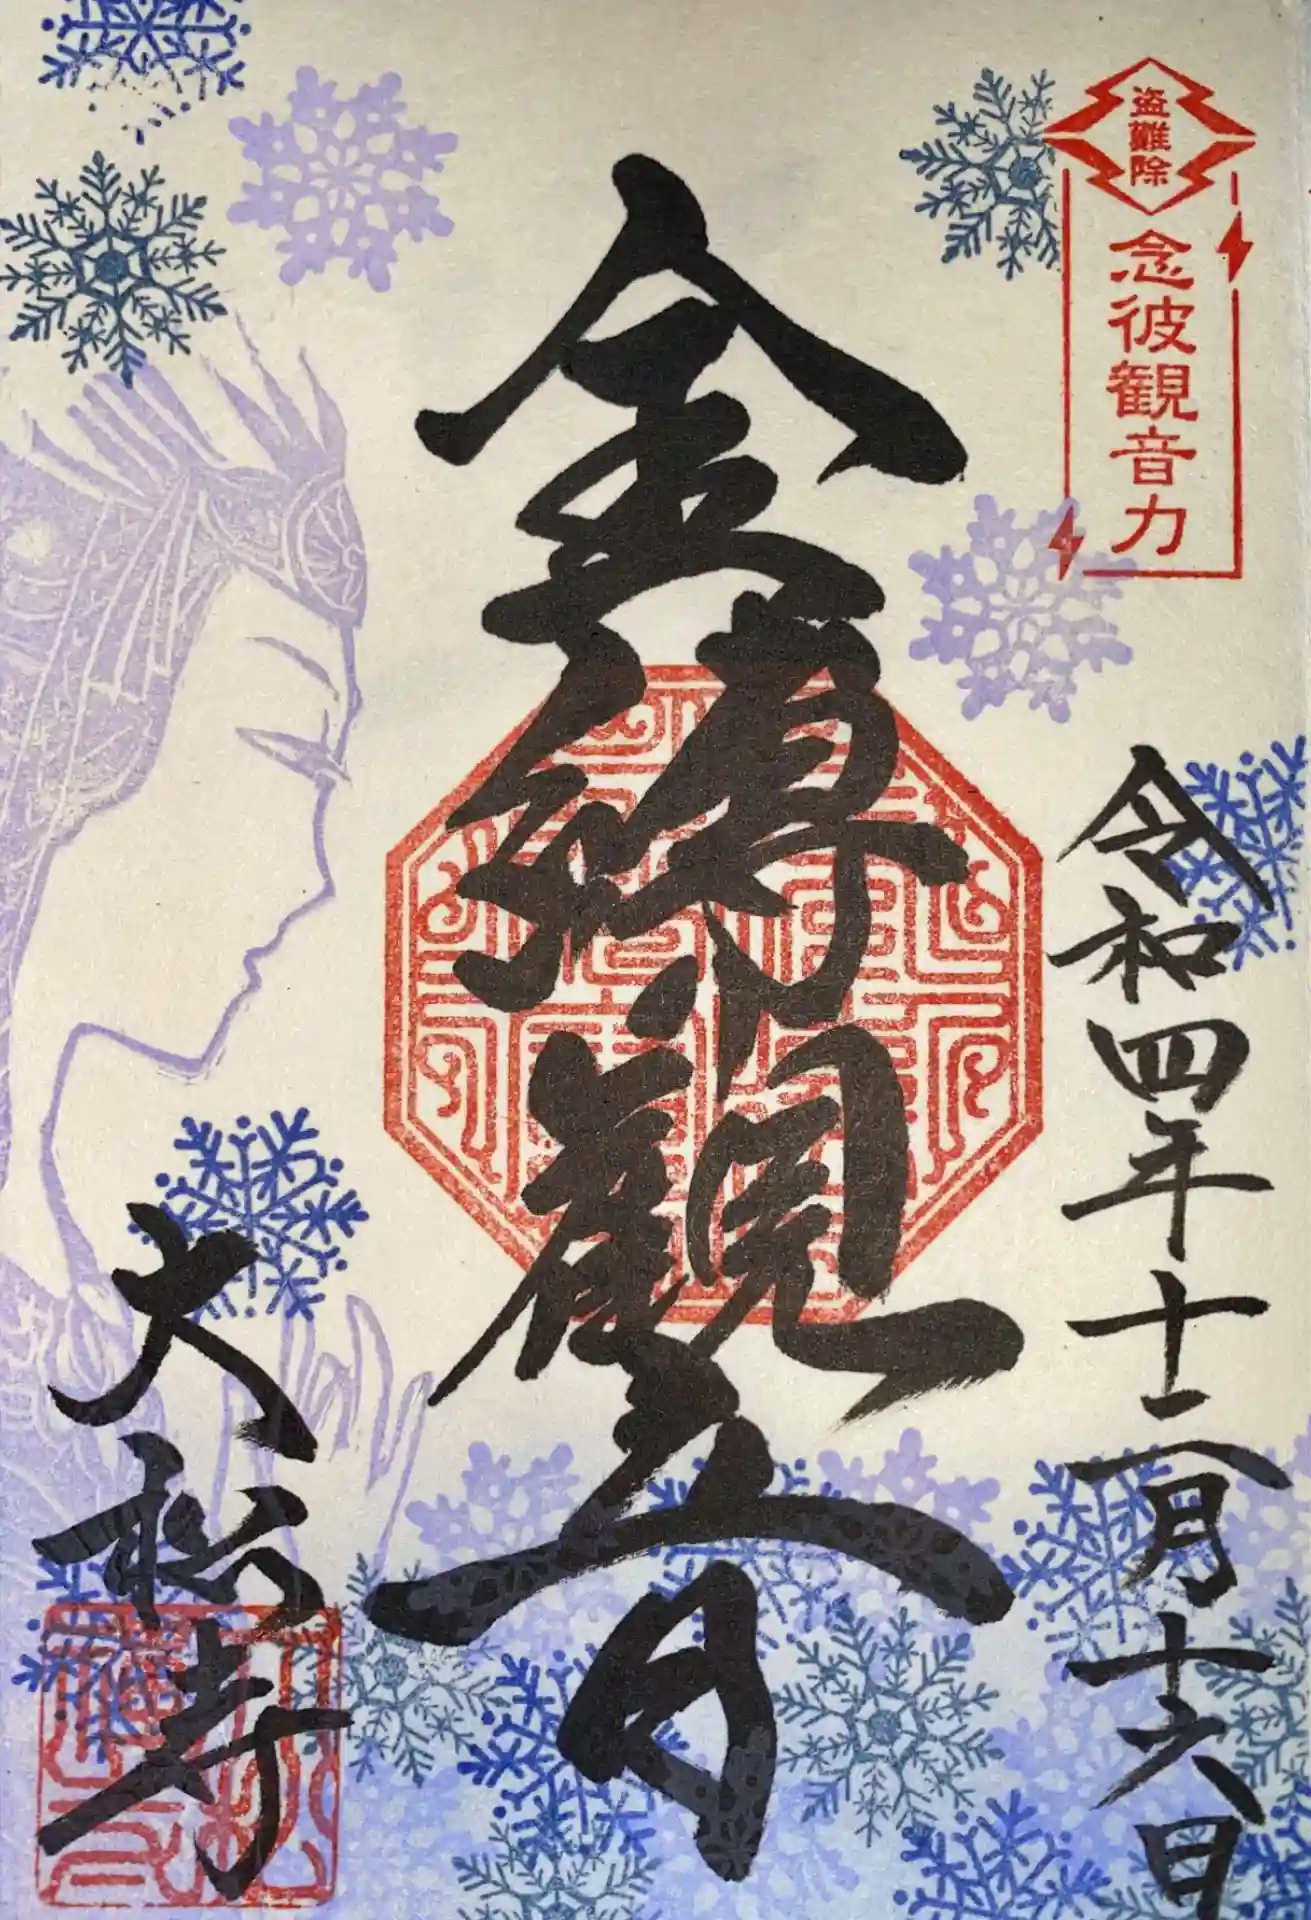 盗難除
念彼観音力
令和四年十二月十六日
金縛觀音
大松寺